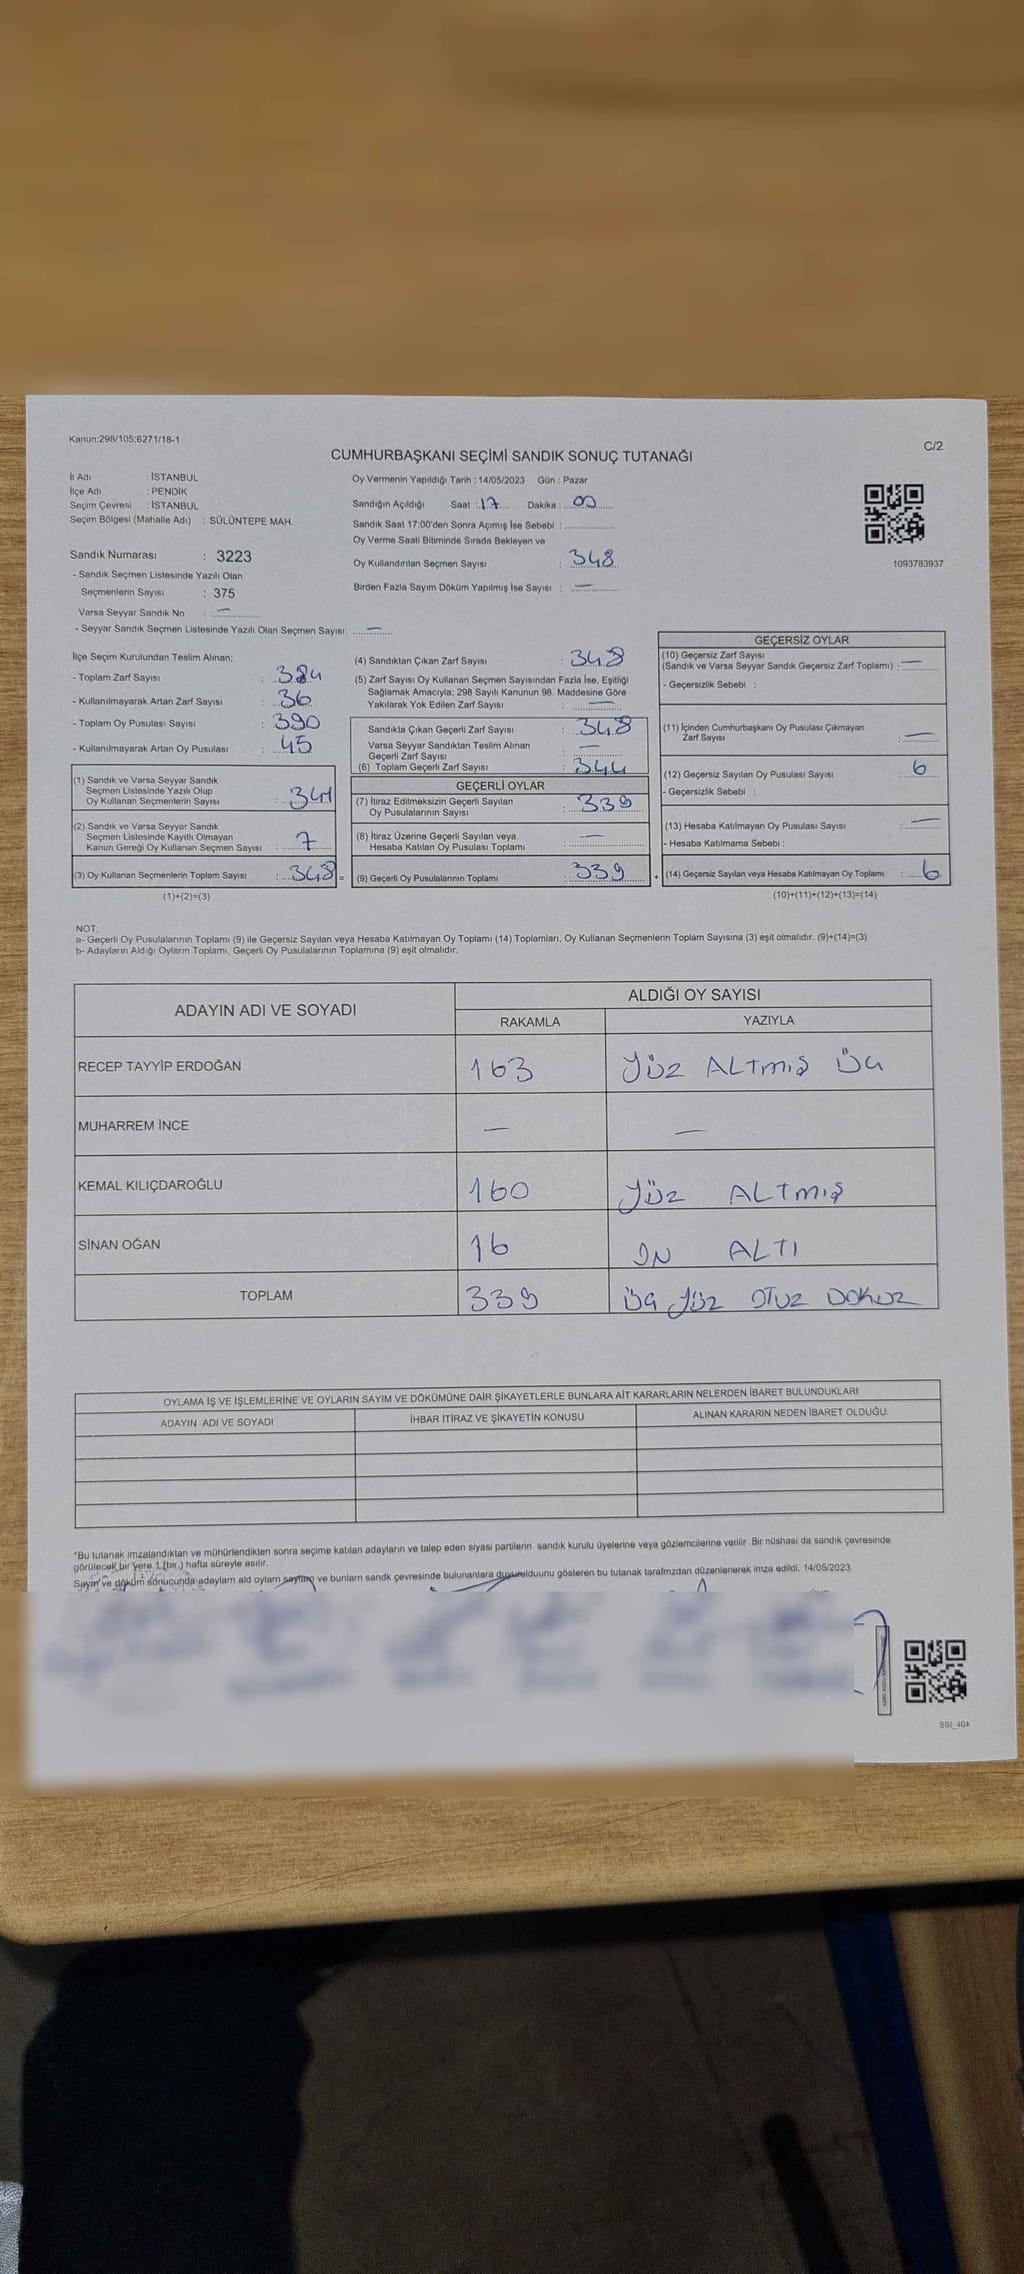 Kanun:298/105;6271/18-1
C/2
CUMHURBAŞKANI SEÇİMİ SANDIK SONUÇ TUTANAĞI
İl Adı : İSTANBUL
İlçe Adı : PENDİK
Seçim Çevresi : İSTANBUL
Seçim Bölgesi (Mahalle Adı) : SÜLÜNTEPE MAH.
Oy Vermenin Yapıldığı Tarih : 14/05/2023 Gün : Pazar
Sandığın Açıldığı Saat : 17 Dakika : 00
Sandık Saat 17:00'den Sonra Açımış İse Sebebi :
Oy Verme Saati Bitiminde Sırada Bekleyen ve
Oy Kullandırılan Seçmen Sayısı : 348
Birden Fazla Sayım Döküm Yapılmış İse Sayısı : —
1093783937
Sandık Numarası : 3223
- Sandık Seçmen Listesinde Yazılı Olan
Seçmenlerin Sayısı : 375
Varsa Seyyar Sandık No : —
- Seyyar Sandık Seçmen Listesinde Yazılı Olan Seçmen Sayısı: —
İlçe Seçim Kurulundan Teslim Alınan;
- Toplam Zarf Sayısı : 384
- Kullanılmayarak Artan Zarf Sayısı : 36
- Toplam Oy Pusulası Sayısı : 390
- Kullanılmayarak Artan Oy Pusulası : 45
(1) Sandık ve Varsa Seyyar Sandık
Seçmen Listesinde Yazılı Olup
Oy Kullanan Seçmenlerin Sayısı : 341
(2) Sandık ve Varsa Seyyar Sandık
Seçmen Listesinde Kayıtlı Olmayan
Kanun Gereği Oy Kullanan Seçmen Sayısı : 7
(3) Oy Kullanan Seçmenlerin Toplam Sayısı : 348 =
(1)+(2)=(3)
(4) Sandıktan Çıkan Zarf Sayısı : 348
(5) Zarf Sayısı Oy Kullanan Seçmen Sayısından Fazla İse, Eşitliği
Sağlamak Amacıyla; 298 Sayılı Kanunun 98. Maddesine Göre
Yakılarak Yok Edilen Zarf Sayısı : —
Sandıkta Çıkan Geçerli Zarf Sayısı : 348
Varsa Seyyar Sandıktan Teslim Alınan
Geçerli Zarf Sayısı : —
(6) Toplam Geçerli Zarf Sayısı : 344
GEÇERLİ OYLAR
(7) İtiraz Edilmeksizin Geçerli Sayılan
Oy Pusulalarının Sayısı : 339
(8) İtiraz Üzerine Geçerli Sayılan veya
Hesaba Katılan Oy Pusulası Toplamı : —
(9) Geçerli Oy Pusulalarının Toplamı : 339 +
GEÇERSİZ OYLAR
(10) Geçersiz Zarf Sayısı
(Sandık ve Varsa Seyyar Sandık Geçersiz Zarf Toplamı) : —
- Geçersizlik Sebebi :
(11) İçinden Cumhurbaşkanı Oy Pusulası Çıkmayan
Zarf Sayısı : —
(12) Geçersiz Sayılan Oy Pusulası Sayısı : 6
- Geçersizlik Sebebi :
(13) Hesaba Katılmayan Oy Pusulası Sayısı : —
- Hesaba Katılmama Sebebi :
(14) Geçersiz Sayılan veya Hesaba Katılmayan Oy Toplamı : 6
(10)+(11)+(12)+(13)=(14)
NOT:
a- Geçerli Oy Pusulalarının Toplamı (9) ile Geçersiz Sayılan veya Hesaba Katılmayan Oy Toplamı (14) Toplamları, Oy Kullanan Seçmenlerin Toplam Sayısına (3) eşit olmalıdır. (9)+(14)=(3)
b- Adayların Aldığı Oyların Toplamı, Geçerli Oy Pusulalarının Toplamına (9) eşit olmalıdır.
ADAYIN ADI VE SOYADI
ALDIĞI OY SAYISI
RAKAMLA YAZIYLA
RECEP TAYYİP ERDOĞAN 163 YÜZ ALTMIŞ ÜÇ
MUHARREM İNCE — —
KEMAL KILIÇDAROĞLU 160 YÜZ ALTMIŞ
SİNAN OĞAN 16 ON ALTI
TOPLAM 339 ÜÇ YÜZ OTUZ DOKUZ
OYLAMA İŞ VE İŞLEMLERİNE VE OYLARIN SAYIM VE DÖKÜMÜNE DAİR ŞİKAYETLERLE BUNLARA AİT KARARLARIN NELERDEN İBARET BULUNDUKLARI
ADAYIN ADI VE SOYADI İHBAR İTİRAZ VE ŞİKAYETİN KONUSU ALINAN KARARIN NEDEN İBARET OLDUĞU
*Bu tutanak imzalandıktan ve mühürlendikten sonra seçime katılan adayların ve talep eden siyasi partilerin sandık kurulu üyelerine veya gözlemcilerine verilir .Bir nüshası da sandık çevresinde
görülecek bir yere 1 (bir.) hafta süreyle asılır.
Sayın ve döküm sonucunda adayların ald oylam sayıları ve bunlarn sandk çevresinde bulunanlara duyurulduunu gösteren bu tutanak tarafmzdan düzenlenerek imza edildi. 14/05/2023
SSI_404